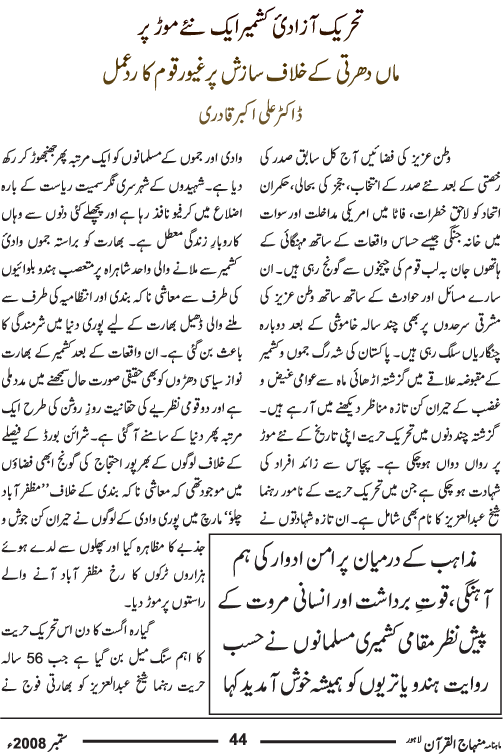 تحریک آزادیٔ کشمیر ایک نئے موڑ پر
ماں دھرتی کے خلاف سازش پر غیور قوم کا ردعمل
ڈاکٹر علی اکبر قادری
وطن عزیز کی فضائیں آج کل سابق صدر کی
رخصتی کے بعد نئے صدر کے انتخاب، ججز کی بحالی، حکمران
اتحاد کو لاحق خطرات، فاٹا میں امریکی مداخلت اور سوات
میں خانہ جنگی جیسے حساس واقعات کے ساتھ مہنگائی کے
ہاتھوں جان بہ لب قوم کی چیخوں سے گونج رہی ہیں۔ ان
سارے مسائل اور حوادث کے ساتھ ساتھ وطن عزیز کی
مشرقی سرحدوں پر بھی چند سالہ خاموشی کے بعد دوبارہ
چنگاریاں سلگ رہی ہیں۔ پاکستان کی شہ رگ جموں و کشمیر
کے مقبوضہ علاقے میں گزشتہ اڑھائی ماہ سے عوامی غیض و
غضب کے حیران کن تازہ مناظر دیکھنے میں آرہے ہیں۔
گزشتہ چند دنوں میں تحریک حریت اپنی تاریخ کے نئے موڑ
پر رواں دواں ہوچکی ہے۔ پچاس سے زائد افراد کی
شہادت ہو چکی ہے جن میں تحریک حریت کے نامور رہنما
شیخ عبدالعزیز کا نام بھی شامل ہے۔ ان تازہ شہادتوں نے
مذاہب کے درمیان پرامن ادوار کی ہم
آہنگی، قوتِ برداشت اور انسانی مروت کے
پیش نظر مقامی کشمیری مسلمانوں نے حسب
روایت ہندو یاتریوں کو ہمیشہ خوش آمدید کہا
وادی اور جموں کے مسلمانوں کو ایک مرتبہ پھر جھنجھوڑ کر رکھ
دیا ہے۔ شہیدوں کے شہر سری نگر سمیت ریاست کے بارہ
اضلاع میں کرفیو نافذ رہا ہے اور پچھلے کئی دنوں سے وہاں
کاروبارِ زندگی معطل ہے۔ بھارت کو براستہ جموں وادیٔ
کشمیر سے ملانے والی واحد شاہراہ پر متعصب ہندو بلوائیوں
کی طرف سے معاشی ناکہ بندی اور انتظامیہ کی طرف سے
ملنے والی ڈھیل بھارت کے لیے پوری دنیا میں شرمندگی کا
باعث بن گئی ہے۔ ان واقعات کے بعد کشمیر کے بھارت
نواز سیاسی دھڑوں کو بھی حقیقی صورت حال سمجھنے میں مدد ملی
ہے اور دو قومی نظریے کی حقانیت روزِ روشن کی طرح ایک
مرتبہ پھر دنیا کے سامنے آگئی ہے۔ شرائن بورڈ کے فیصلے
کے خلاف لوگوں کے بھرپور احتجاج کی گونج ابھی فضاؤں
میں موجود تھی کہ معاشی ناکہ بندی کے خلاف ’’مظفر آباد
چلو‘‘ مارچ میں پوری وادی کے لوگوں نے حیران کن جوش و
جذبے کا مظاہرہ کیا اور پھلوں سے لدے ہوئے
ہزاروں ٹرکوں کا رخ مظفر آباد آنے والے
راستوں پر موڑ دیا۔
گیارہ اگست کا دن اس تحریک حریت
کا اہم سنگ میل بن گیا ہے جب 56 سالہ
حریت رہنما شیخ عبدالعزیز کو بھارتی فوج نے
ماہنامہ منہاج القرآن لاہور 44 ستمبر 2008ء